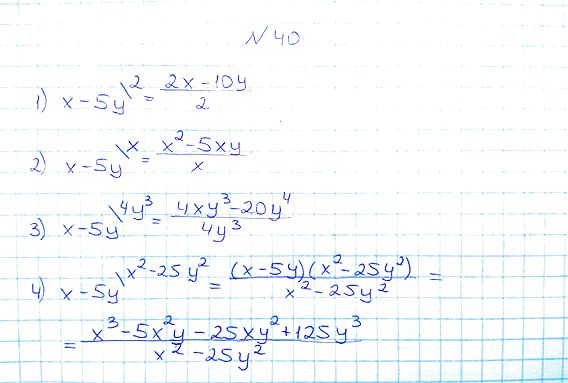 № 40
1) x - 5y \2 = (2x - 10y)/2
2) x - 5y \x = (x² - 5xy)/x
3) x - 5y \4y³ = (4xy³ - 20y⁴)/4y³
4) x - 5y \x² - 25y² = (x - 5y)(x² - 25y²)/(x² - 25y²) =
= (x³ - 5x²y - 25xy² + 125y³)/(x² - 25y²)